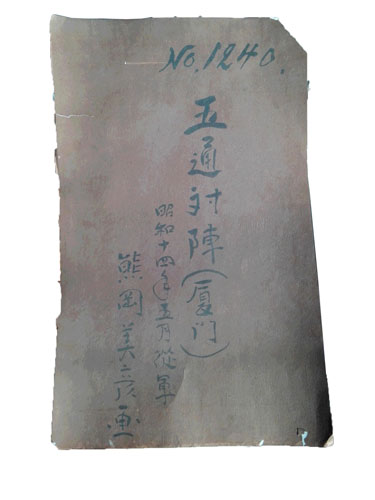 No.1240.
五通対陣(厦门)
昭和十四年五月従軍
熊岡美彦画